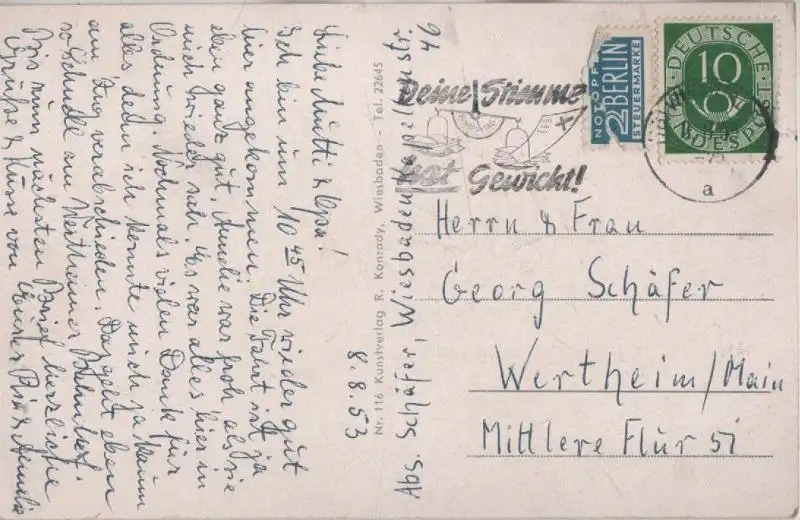 8.8.53
Liebe Mutti & Opa!
Ich bin um 10 45 Uhr wieder gut
hier angekommen. Die Fahrt ist ja
eben ganz gut. Amelie war froh als sie
mich wieder sah. Es war alles hier in
Ordnung. Nochmals vielen Dank für
alles denn ich konnte mich ja kaum
am Zug verabschieden. Das geht eben
so schnell am Wertheimer Bahnhof.
Bis zum nächsten Brief herzliche
Grüße & Küsse von Eurer Ria & Amelie
Nr. 116 Kunstverlag R. Konrady, Wiesbaden - Tel. 22645
Abs. Schäfer, Wiesbaden
46
Deine Stimme
hat Gewicht!
NOTOPFER
2 BERLIN
STEUERMARKE
DEUTSCHE
10
BUNDESPOST
a
Herrn & Frau
Georg Schäfer
Wertheim/Main
Mittlere Flur 51